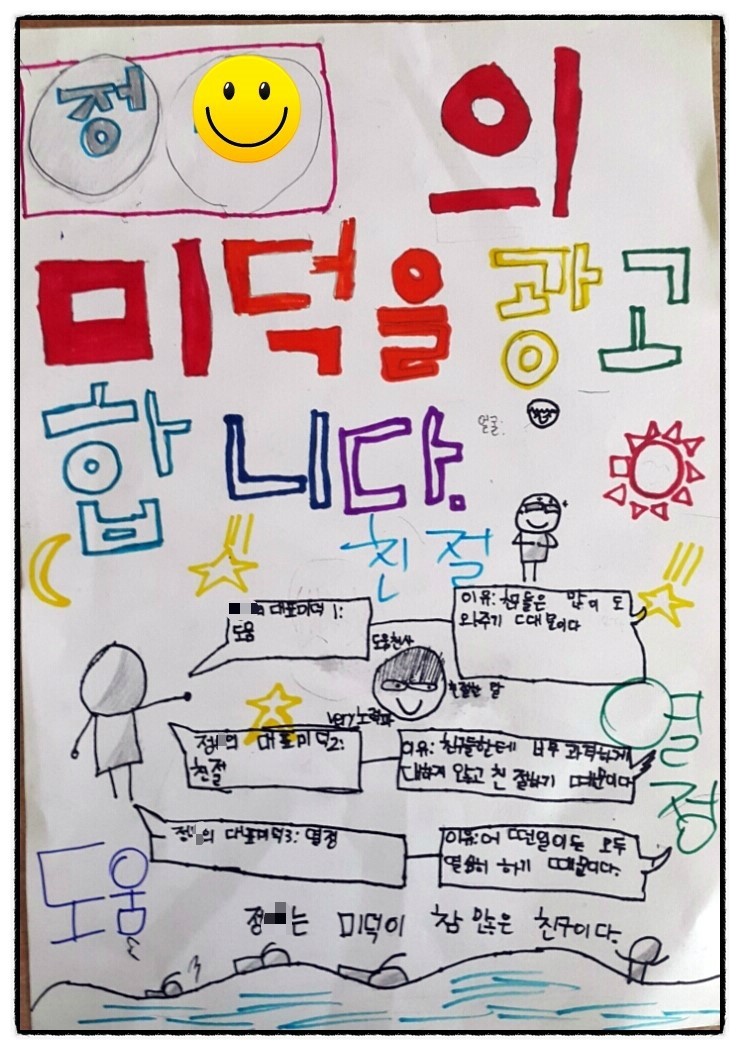 정 의
미덕을 광고
합니다.
얼굴:
친절
의 대표미덕 1:
도움
이유: 친구들은 많이 도
와주기 때문이다
도움천사
친절한 말
very 노력파
열정
정 의 대표미덕2:
친절
이유: 친구들한테 너무 과격하게
대하지 않고 친절하기 때문이다
정 의 대표미덕3: 열정
이유: 어떤일이든 모두
열심히 하기 때문이다.
도움
정 는 미덕이 참 많은 친구이다.